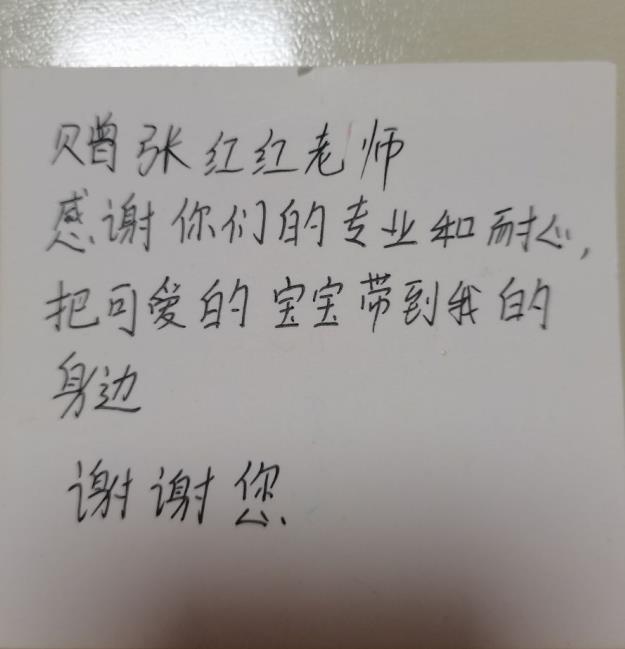 赠张红红老师
感谢你们的专业和耐心,
把可爱的宝宝带到我的
身边
谢谢您